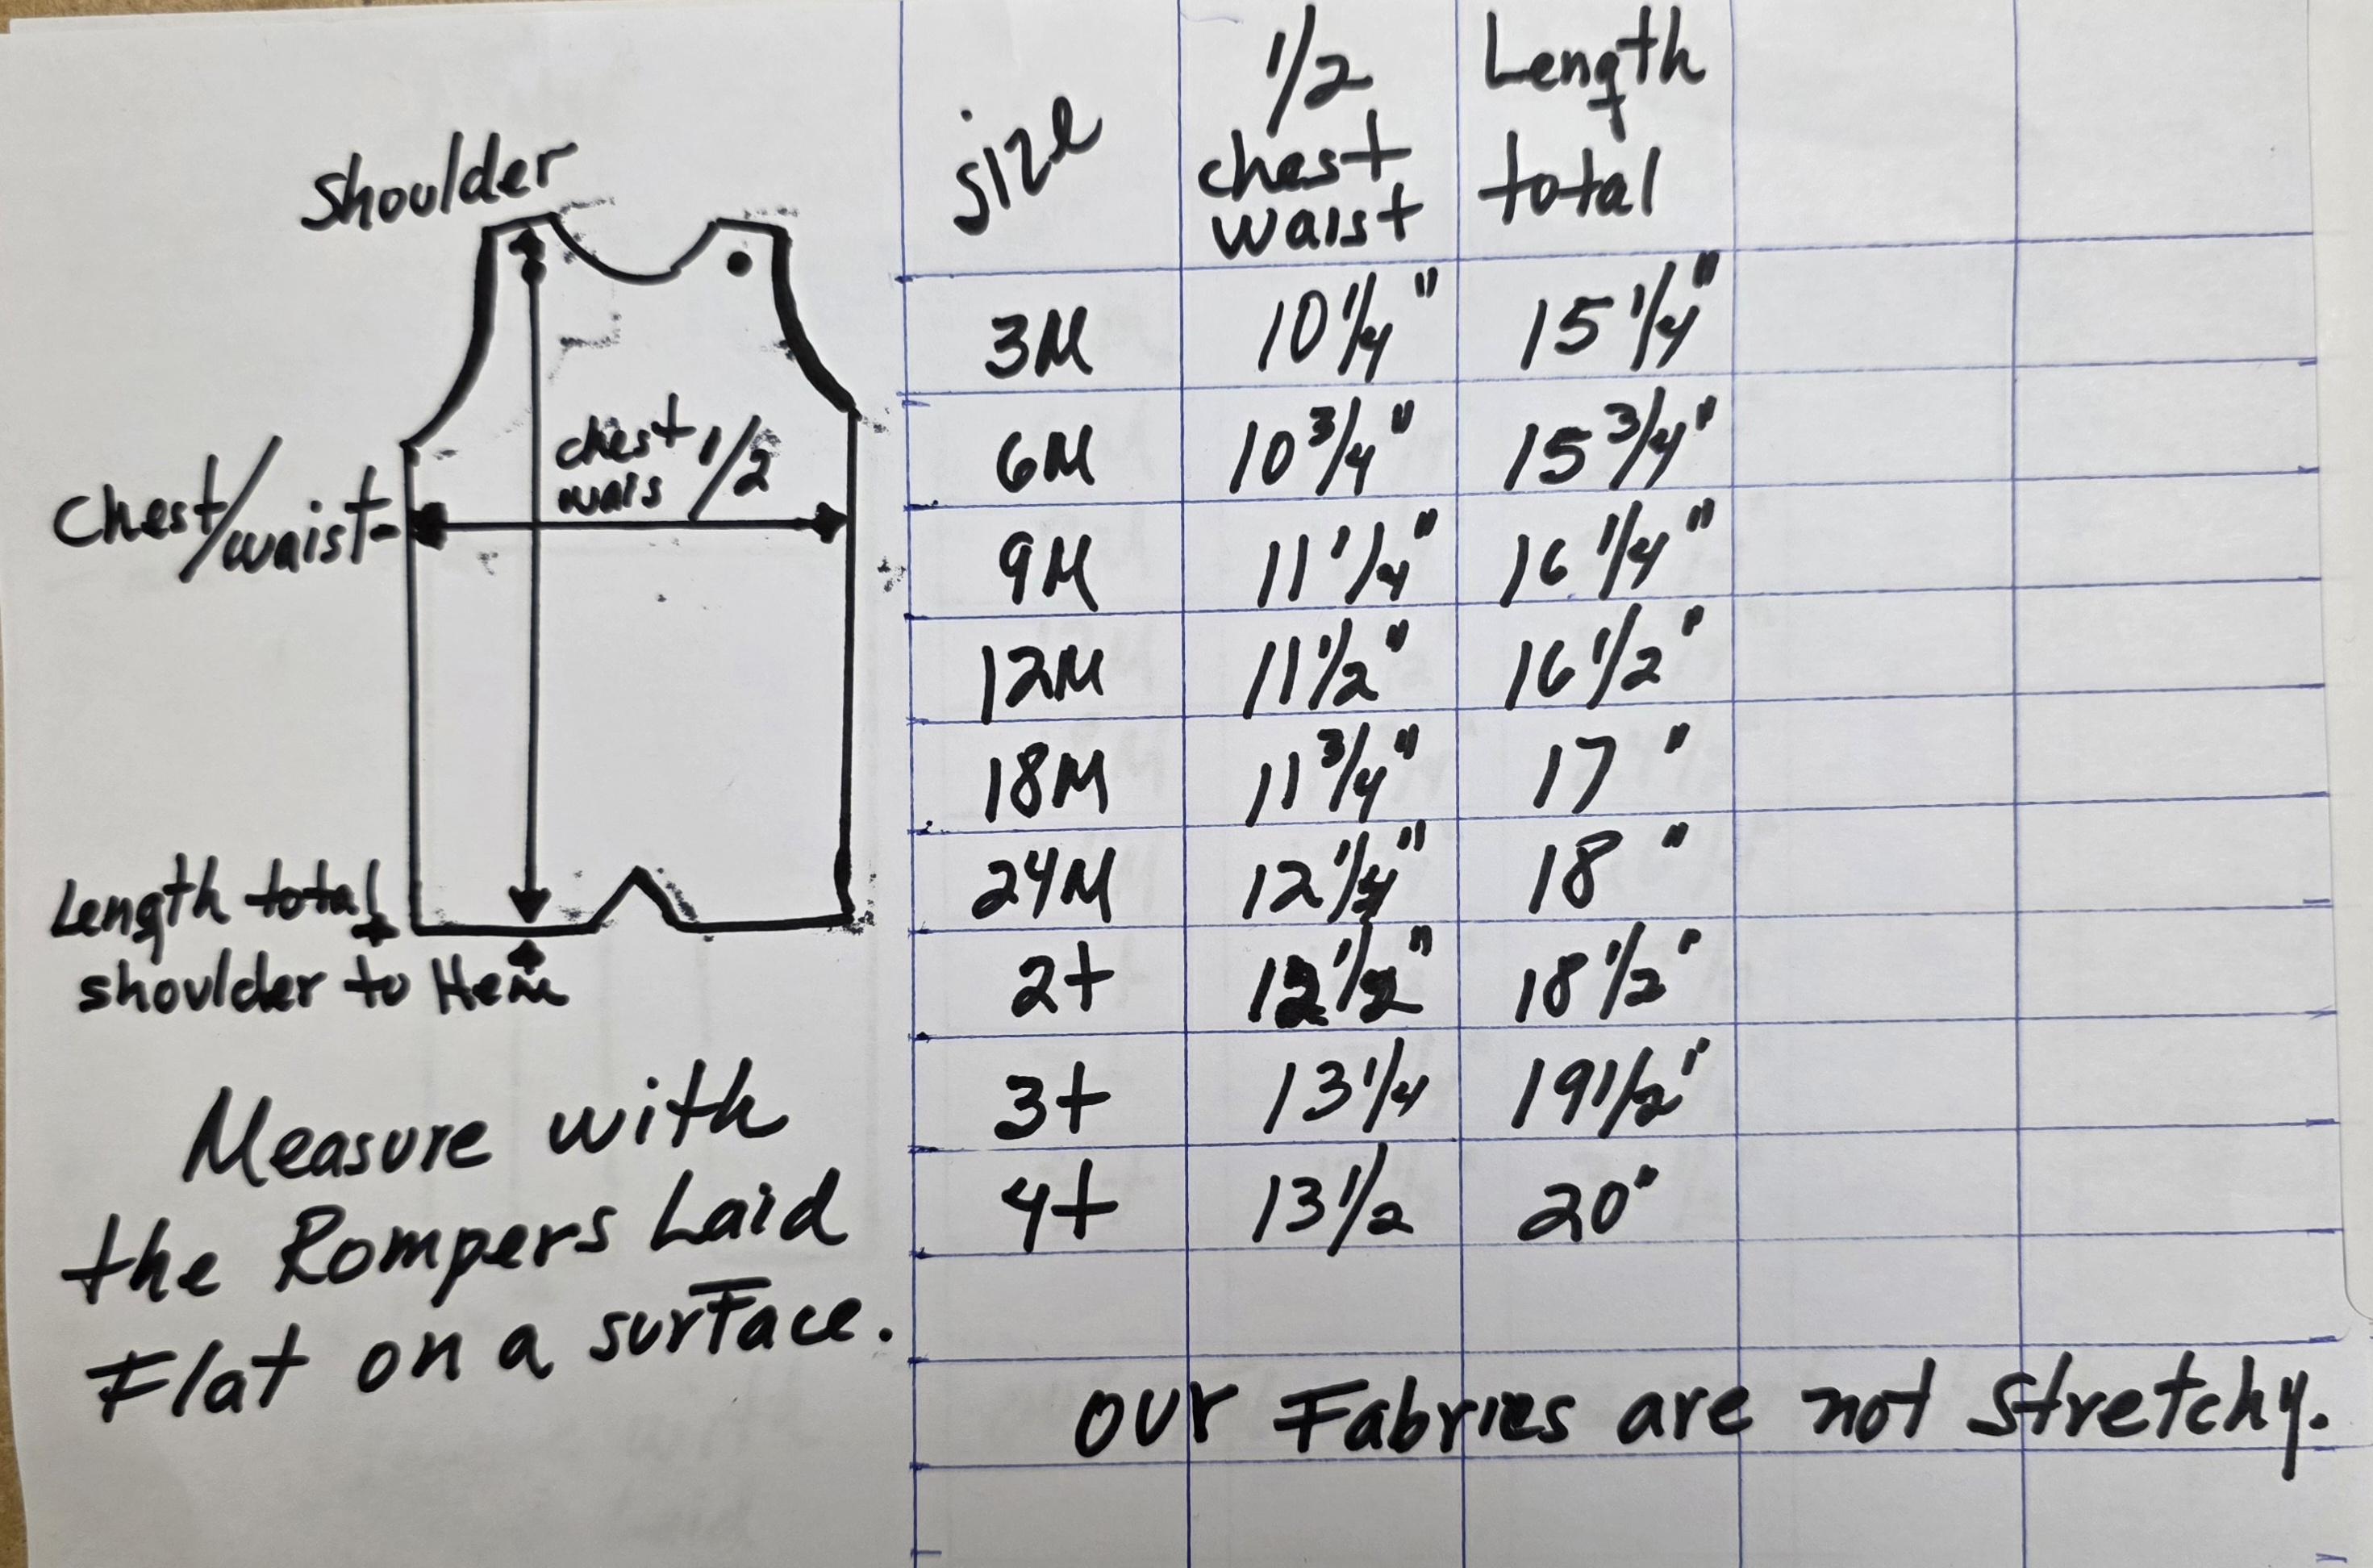 Shoulder
chest
wais 1/2
Chest/waist
Length total
shoulder to Hem
Measure with
the Rompers Laid
Flat on a surface.
size 1/2 chest waist Length total
3M 10 1/4" 15 1/4"
6M 10 3/4" 15 3/4"
9M 11 1/4" 16 1/4"
12M 11 1/2" 16 1/2"
18M 11 3/4" 17"
24M 12 1/4" 18"
2+ 12 1/2" 18 1/2"
3+ 13 1/4 19 1/2"
4+ 13 1/2 20"
our Fabrics are not stretchy.